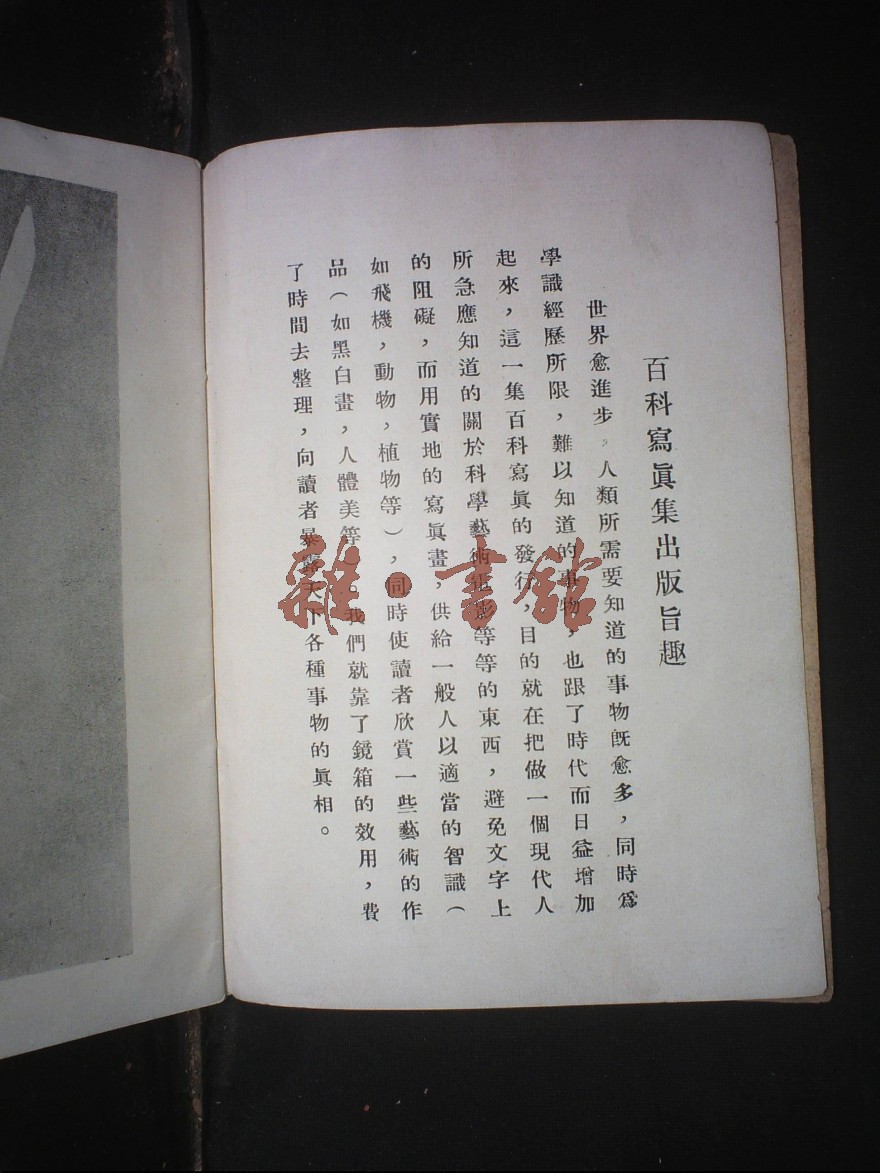 百科寫眞集出版旨趣
世界愈進步，人類所需要知道的事物旣愈多，同時爲
學識經歷所限，難以知道的事物，也跟了時代而日益增加
起來，這一集百科寫眞的發行，目的就在把做一個現代人
所急應知道的關於科學藝術等等的東西，避免文字上
的阻礙，而用實地的寫眞畫，供給一般人以適當的智識（
如飛機，動物，植物等），同時使讀者欣賞一些藝術的作
品（如黑白畫，人體美等）。我們就靠了鏡箱的效用，費
了時間去整理，向讀者暴露天下各種事物的眞相。
雜·書館